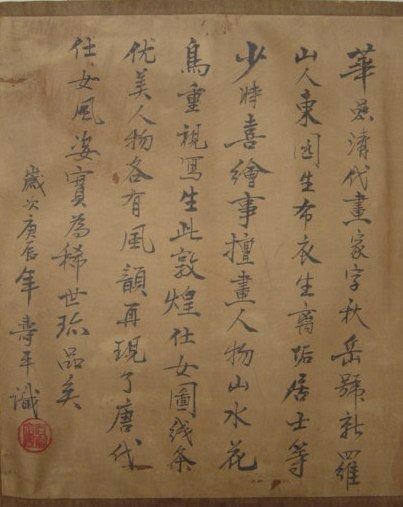 華嵒清代畫家字秋岳號新羅
山人東園生布衣生离垢居士等
少時喜繪事擅畫人物山水花
鳥重視寫生此敦煌仕女圖线条
优美人物各有風韻再現了唐代
仕女風姿實為稀世珎品矣
歲次庚辰年壽平識